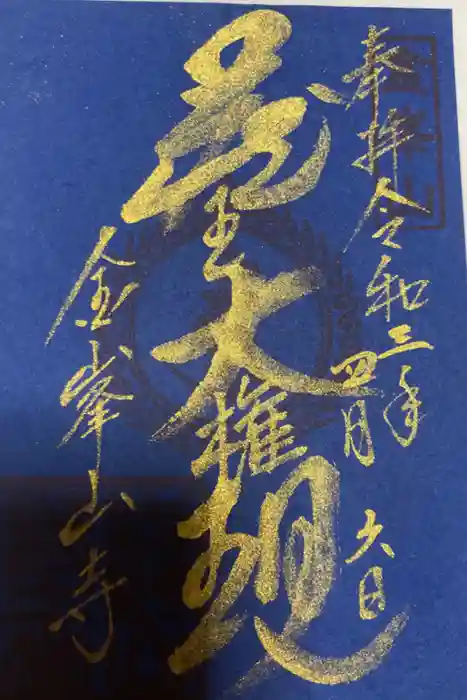 奉拝 令和三年
四月 六日
蔵王大権現
金峯山寺